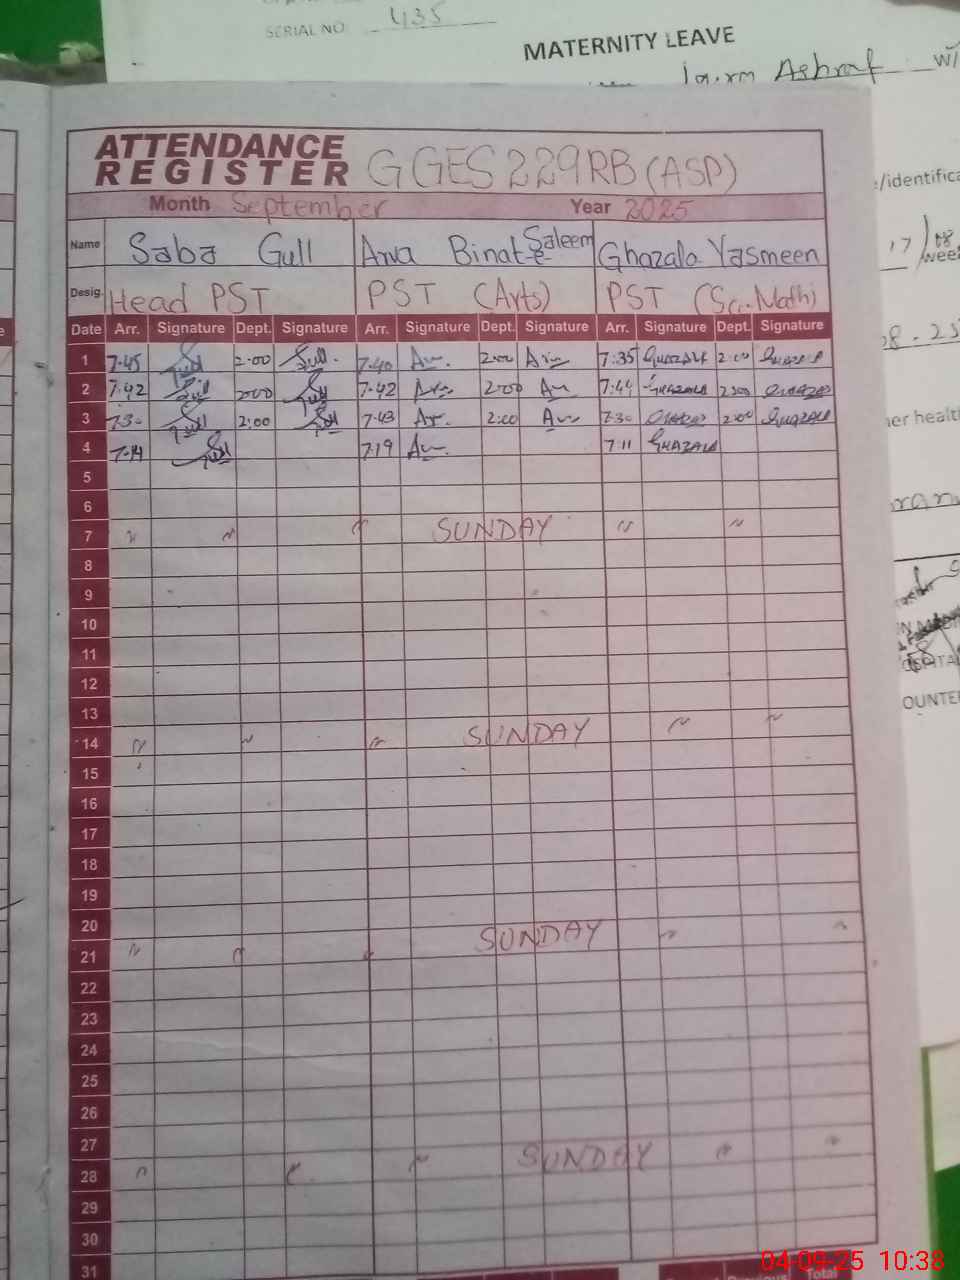 SERIAL NO. 435
MATERNITY LEAVE
Ashraf w/
ATTENDANCE
REGISTER GGES 229RB (ASP)
Month September Year 2025
Name Saba Gull Saleem Ghazala Yasmeen
Desig. Head PST PST (Arts) PST (Sci. Math)
Date Arr. Signature Dept. Signature Arr. Signature Dept. Signature Arr. Signature Dept. Signature
1 7.45 Gull 2.00 Gull. 7.40 2.00 7:35 GHAZALA 2:00 GHAZALA
2 7.42 Gull 2.00 Gull 7.42 2.00 7:44 GHAZALA 2:00 GHAZALA
3 7.30 Gull 2:00 Gull 7.43 2:00 7:30 GHAZALA 2:00 GHAZALA
4 7.14 Gull 7.19 7.11 GHAZALA
5
6
7 " " " SUNDAY " "
8
9
10
11
12
13
14 " " " SUNDAY " "
15
16
17
18
19
20
21 " " " SUNDAY " "
22
23
24
25
26
27
28 " " " SUNDAY " "
29
30
31
Total
/identifica
17/08
wee
08.25
her health
OUNTE
04-09-25 10:38